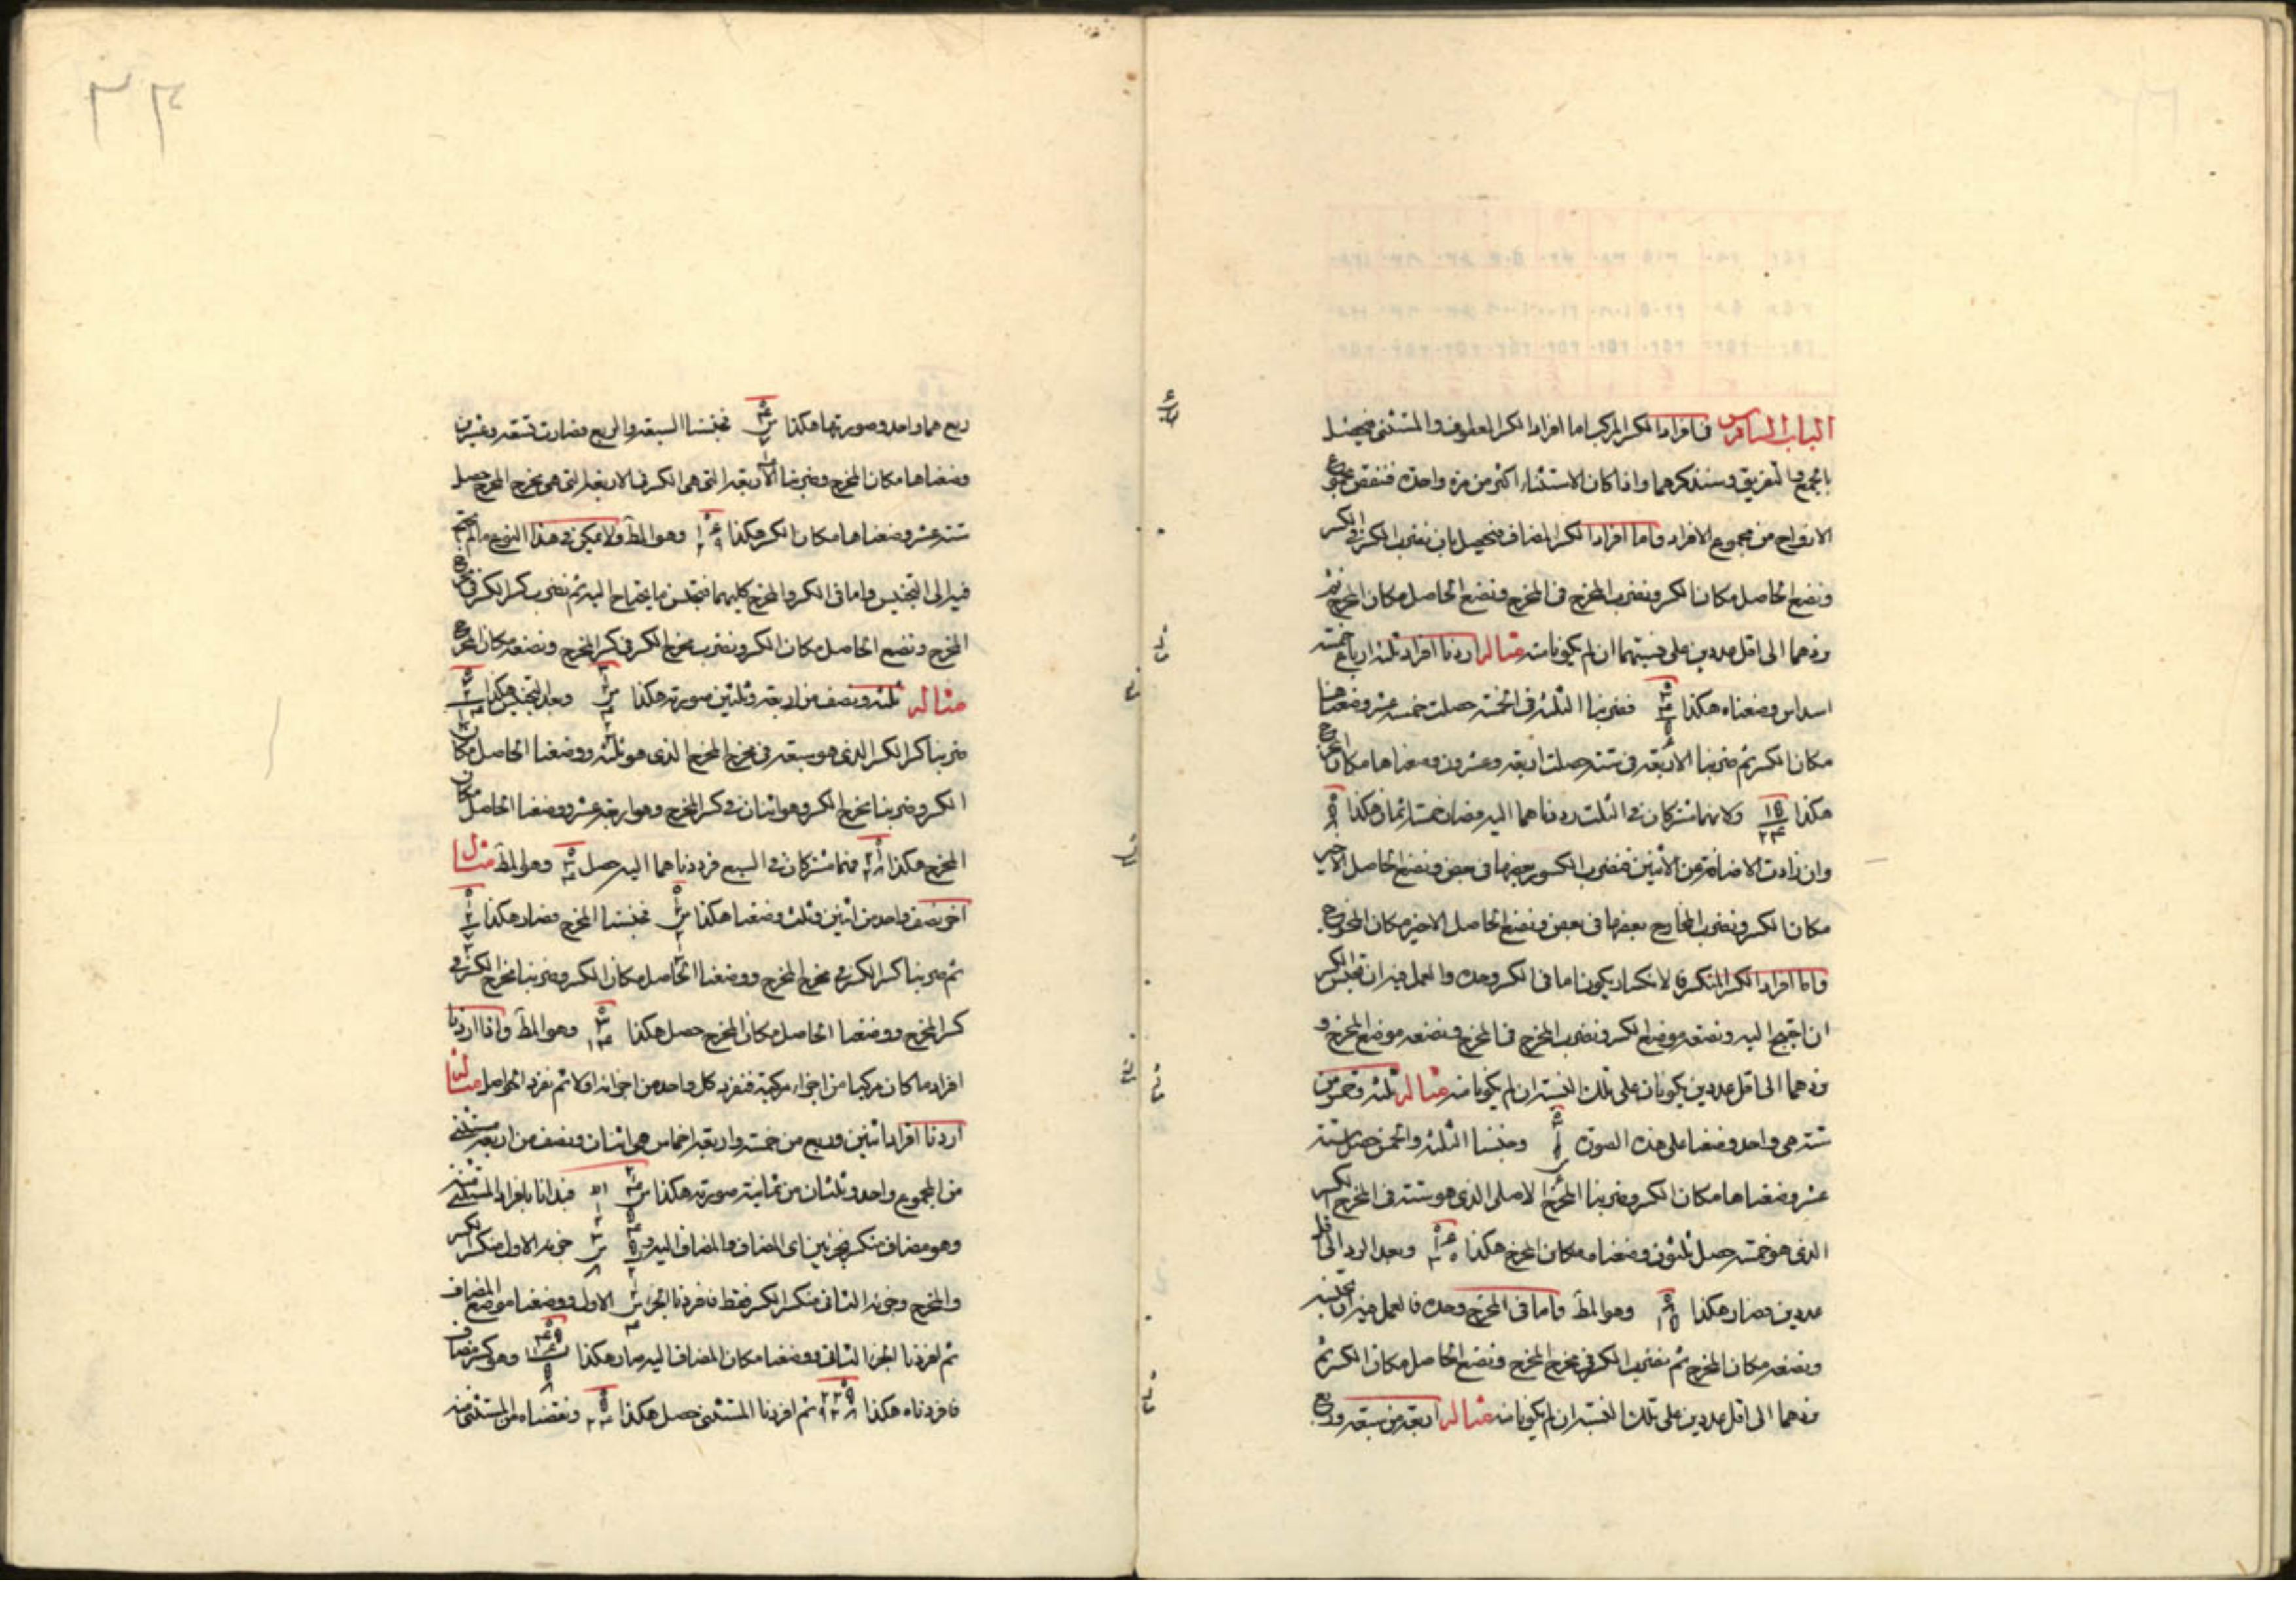 الباب السادس في افراد الكسر المركب اما افراد الكسر المعطوف والمستثنى فيحصل
بالجمع والتفريق وسنذكرهما واذا كان الاستثناء اكثر من مرة واحدة فننقص مجموع
الازواج من مجموع الافراد واما افراد الكسر المضاف فيحصل بان نضرب الكسر في الكسر
ونضع الحاصل مكان الكسر ونضرب المخرج في المخرج ونضع الحاصل مكان المخرج ثم
نردهما الى اقل عددين على نسبتهما ان لم يكونا منه مثاله اردنا افراد ثلثة ارباع خمسة
اسداس وضعناه هكذا فضربنا الثلثة في الخمسة حصلت خمسة عشر وضعناها
مكان الكسر ثم ضربنا الاربعة في ستة حصلت اربعة وعشرون وضعناها مكان المخرج
هكذا ١٥ ٢٤ ولانهما مشتركان في الثلث رددناهما اليه فصار خمسة اثمان هكذا ٥ ٨
وان زادت الاضافة عن الاثنين فنضرب الكسور بعضها في بعض ونضع الحاصل الاخير
مكان الكسر ونضرب المخارج بعضها في بعض ونضع الحاصل الاخير مكان المخرج
واما افراد الكسر المنكسر فالانكسار يكون اما في الكسر وحده والعمل فيه ان نجنس الكسر
ان احتيج اليه ونضعه موضع الكسر ونضرب المخرج في المخرج ونضعه موضع المخرج و
نردهما الى اقل عددين يكونان على تلك النسبة ان لم يكونا منه مثاله ثلثة وخمس من
ستة هي واحد وضعنا على هذه الصورة وجنسنا الثلثة والخمس حصل ستة
عشر وضعناها مكان الكسر وضربنا المخرج الاصلي الذي هو ستة في المخرج الكسر
الذي هو خمسة حصل ثلثون وضعناه مكان المخرج هكذا وبعد الرد الى اقل
عددين صار هكذا ٨ ١٥ وهو المط واما في المخرج وحده فالعمل فيه ان نجنسه
ونضعه مكان المخرج ثم نضرب الكسر في مخرج المخرج ونضع الحاصل مكان الكسر ثم
نردهما الى اقل عددين على تلك النسبة ان لم يكونا منه مثاله اربعة من سبعة وربع
ربع هما واحد وصورتها هكذا فجنسنا السبعة والربع فصارت تسعة وعشرين
وضعناها مكان المخرج وضربنا الاربعة التي هي الكسر في الاربعة التي هي مخرج المخرج حصل
ستة عشر وضعناها مكان الكسر هكذا وهو المط ولا يمكن في هذا النوع ما لم يحتج
فيه الى التجنيس واما في الكسر والمخرج كليهما فنجنس ما يحتاج اليه ثم نضرب كسر الكسر في مخرج
المخرج ونضع الحاصل مكان الكسر ونضرب مخرج الكسر في كسر المخرج ونضعه مكان المخرج
مثاله ثلثة ونصف من اربعة وثلثين صورته هكذا وبعد التجنيس هكذا
ضربنا كسر الكسر الذي هو سبعة في مخرج المخرج الذي هو ثلثة ووضعنا الحاصل مكان
الكسر وضربنا مخرج الكسر وهو اثنان في كسر المخرج وهو اربعة عشر ووضعنا الحاصل مكان
المخرج هكذا فهما مشتركان في السبع فرددناهما اليه حصل ٣ ٤ وهو المط مثال
اخر نصف واحد من اثنين وثلث وضعنا هكذا فجنسنا المخرج فصار هكذا
ثم ضربنا كسر الكسر في مخرج المخرج ووضعنا الحاصل مكان الكسر وضربنا مخرج الكسر في
كسر المخرج ووضعنا الحاصل مكان المخرج حصل هكذا ٣ ١٤ وهو المط واذا اردنا
افراد ما كان مركبا من اجزاء مركبة فنفرد كل واحد من اجزائه اولا ثم نفرد الحواصل مثاله
اردنا افراد اثنين وربع من خمسة واربعة اخماس هي اثنان ونصف من اربعة مستثنى
من المجموع واحد وثلثان من ثمانية صورته هكذا فبدأنا بافراد المستثنى منه
وهو مضاف منكسر بجزئين اى المضاف والمضاف اليه جزؤه الاول منكسر الكسر
والمخرج وجزؤه الثاني منكسر الكسر فقط فافردنا الجزء الاول ووضعنا موضع المضاف
ثم افردنا الجزء الثاني ووضعنا مكان المضاف اليه صار هكذا وهو كسر مضاف
فافردناه هكذا ثم افردنا المستثنى حصل هكذا ونقصناه من المستثنى منه